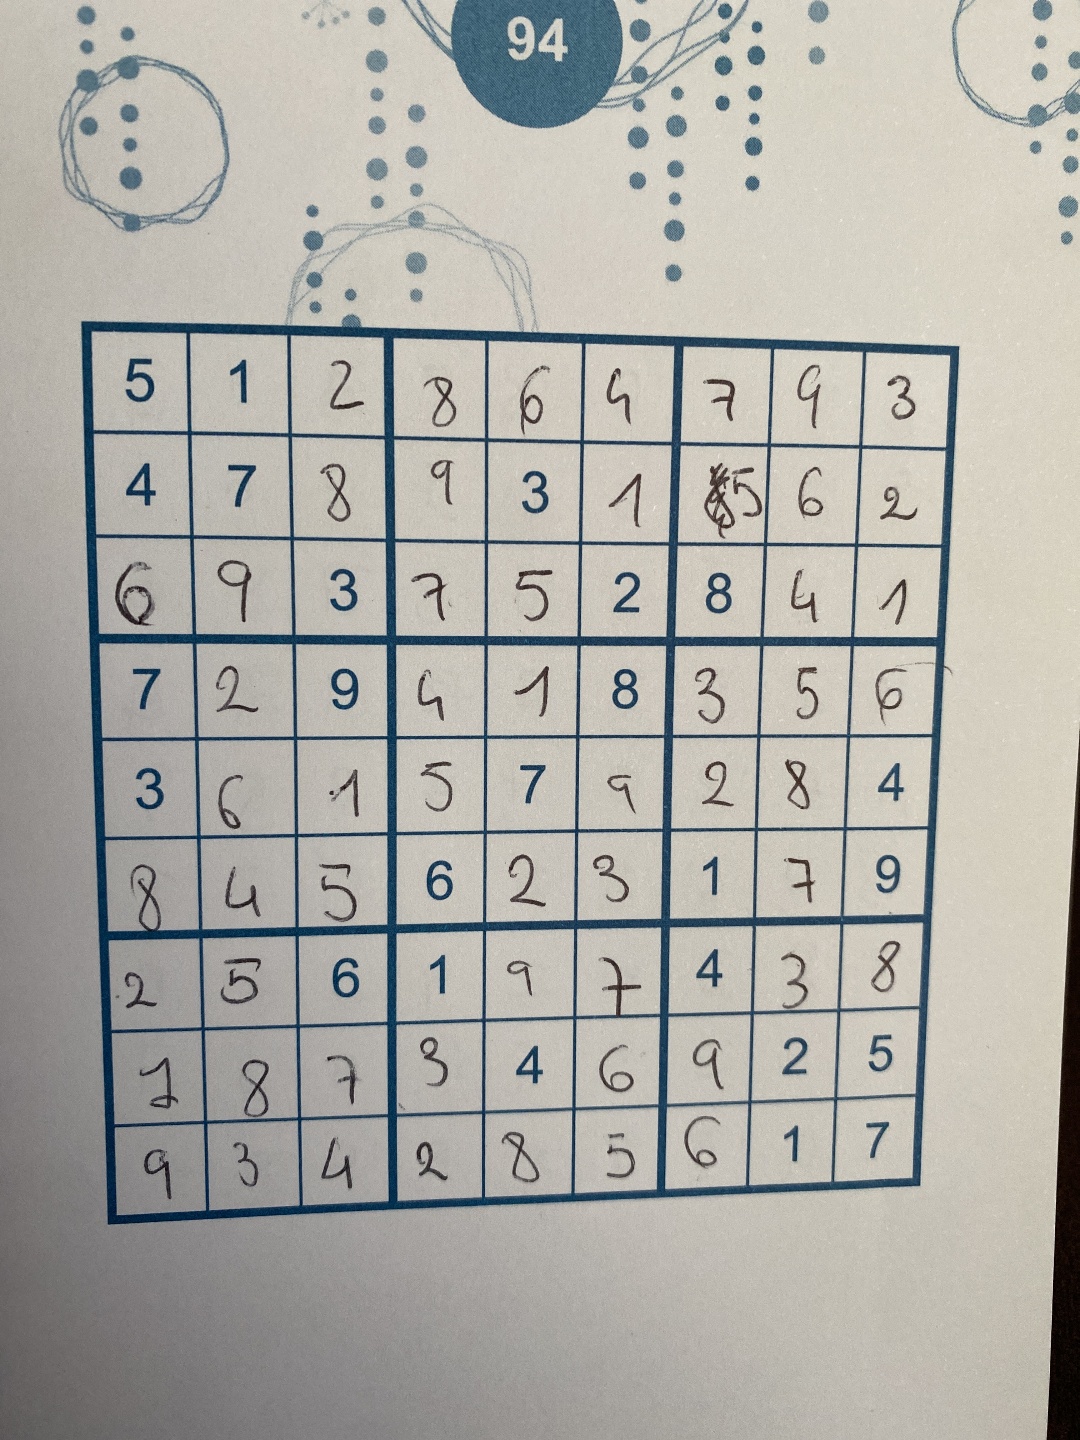 94
5 1 2 8 6 4 7 9 3
4 7 8 9 3 1 5 6 2
6 9 3 7 5 2 8 4 1
7 2 9 4 1 8 3 5 6
3 6 1 5 7 9 2 8 4
8 4 5 6 2 3 1 7 9
2 5 6 1 9 7 4 3 8
1 8 7 3 4 6 9 2 5
9 3 4 2 8 5 6 1 7